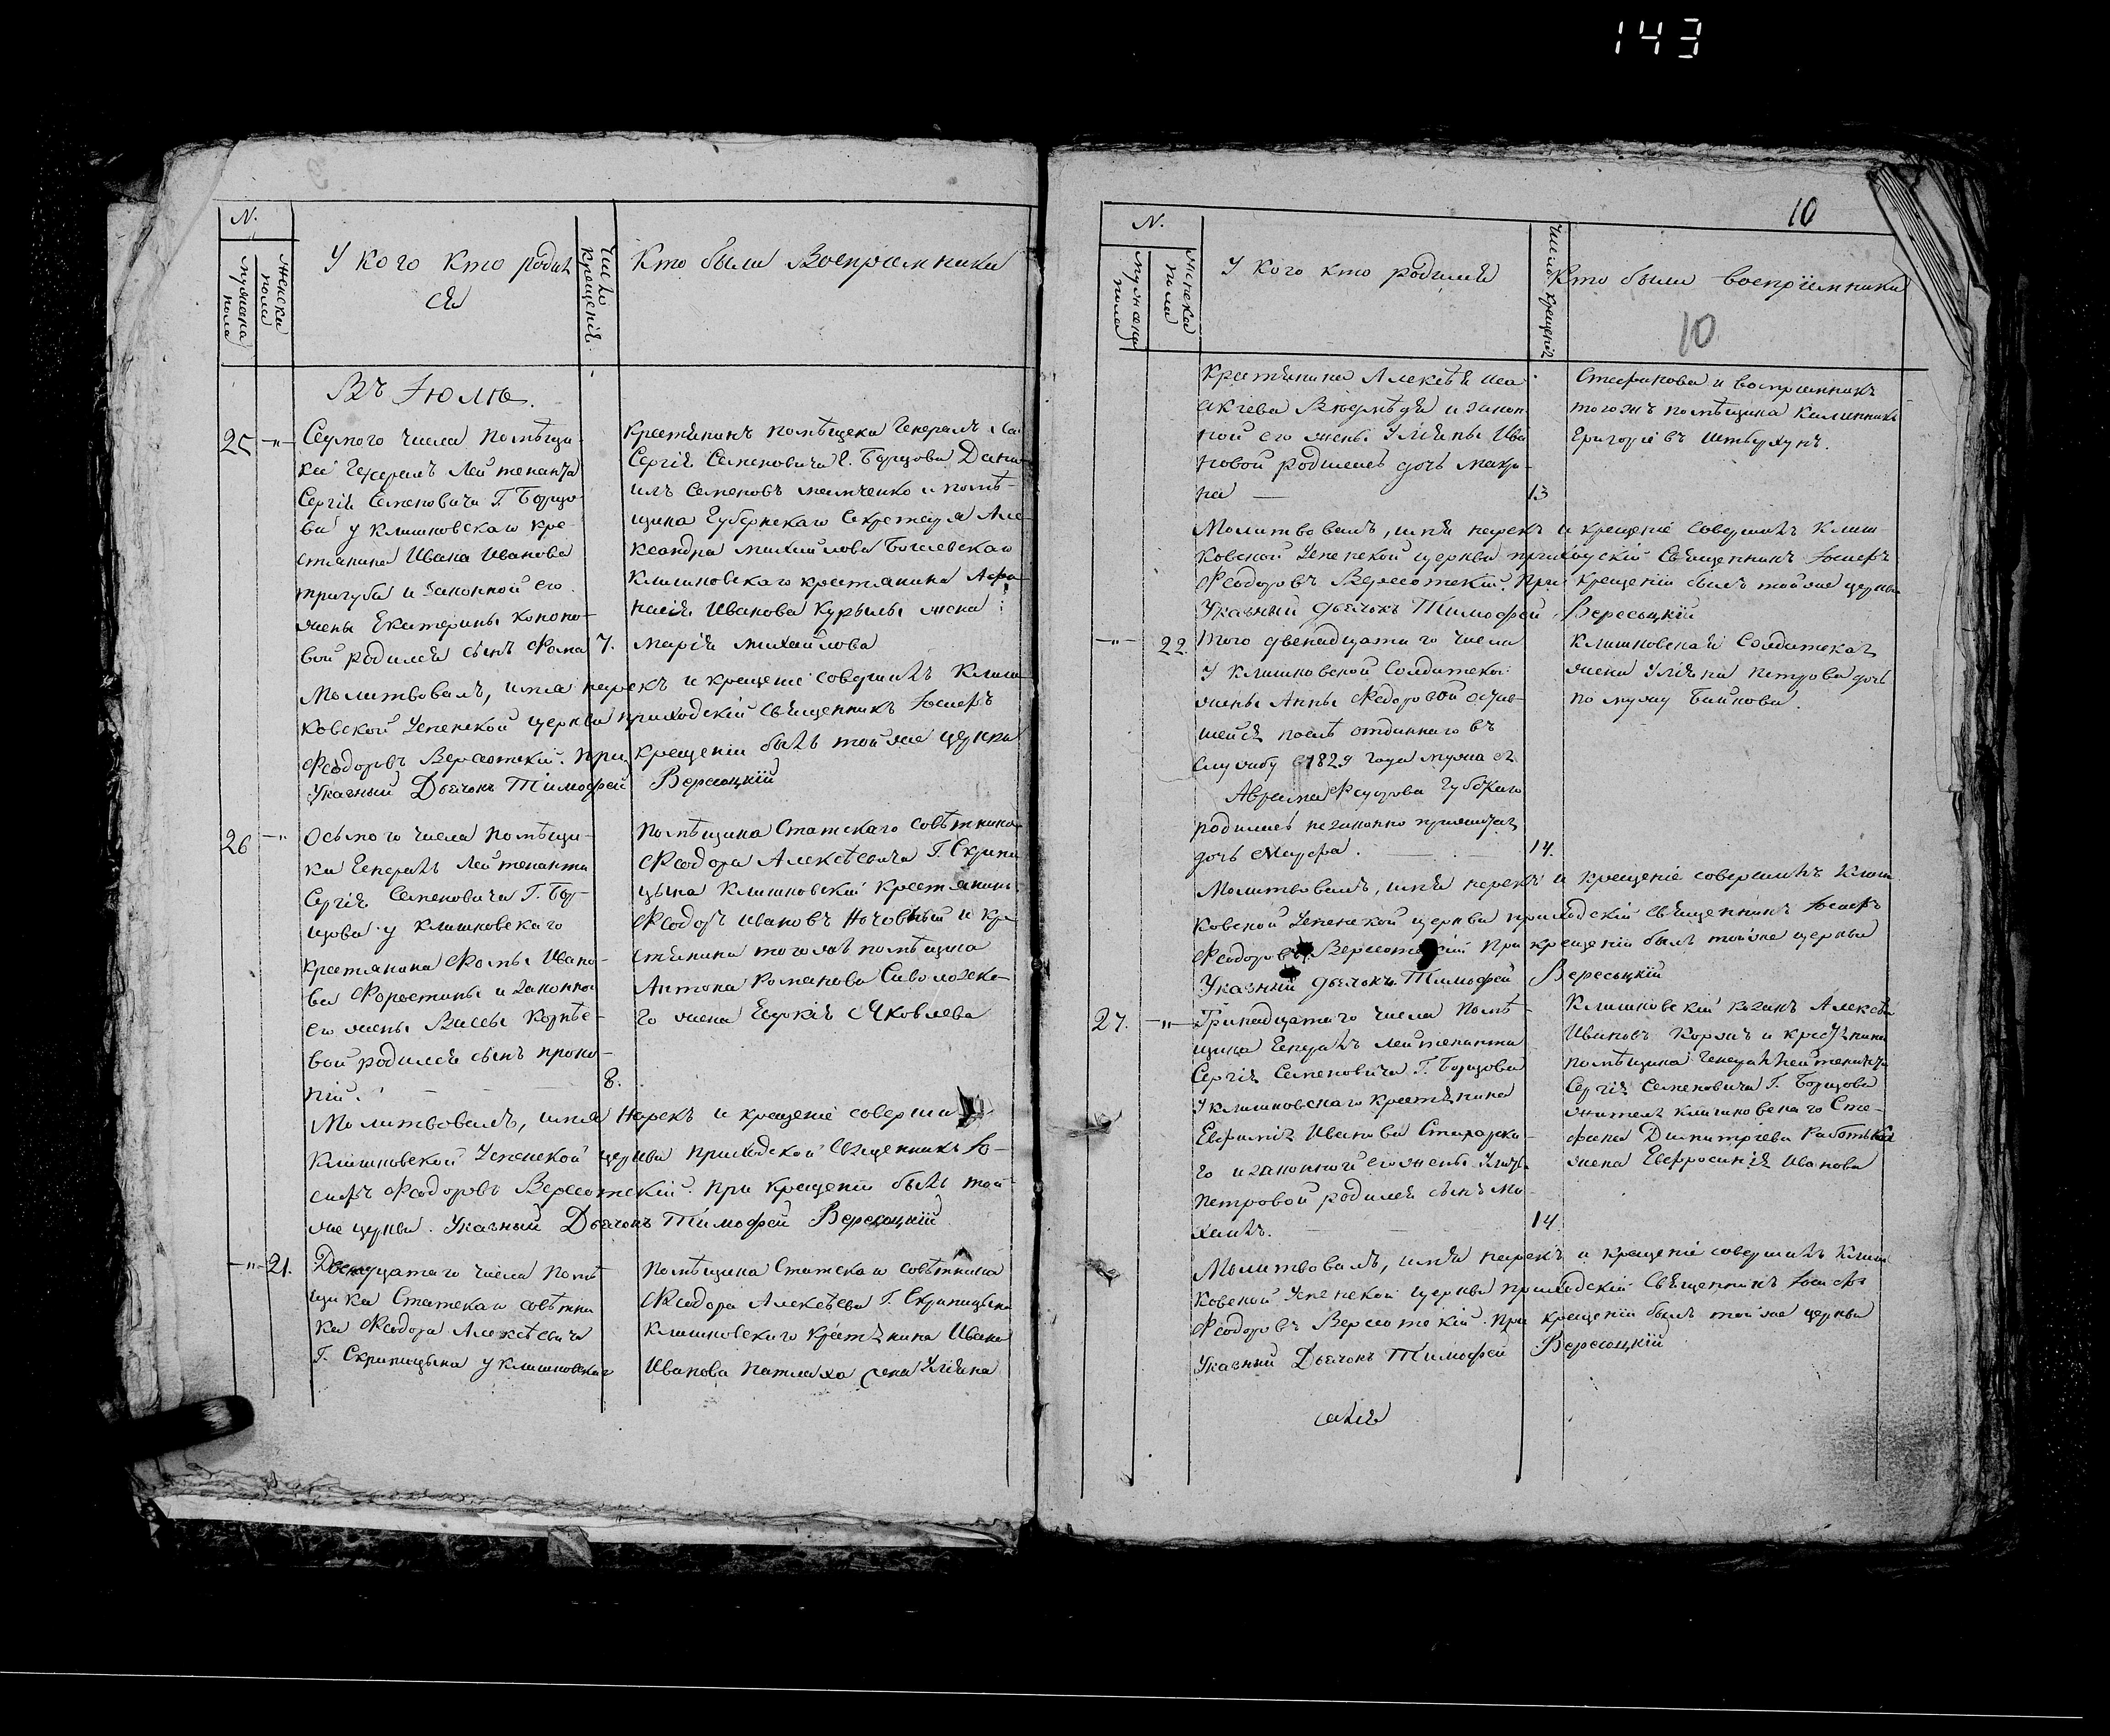 143
N.
мужеска пола
женска пола
У кого кто родил
ся
число крещенія.
Кто были Восприемники
Въ Іюлѣ.
25 -"-
Седмого числа помѣщи-
ка Генералъ Лейтенанта
Сергія Семеновича Г. Борщо-
ва у клишковскаго кре-
стянина Ивана Иванова
тригуба и законной его
жены Екатерины Конono-
вой родился сынъ Фома 7.
крестянинъ помѣщика Генералъ Ле
Сергія Семеновича Г. Борщова Дани-
илъ Семеновъ и помѣ-
щика Губернскаго Секретаря Але-
ксандра михайлова
клишковскаго крестянина Афа-
насія Иванова Курылы жена
марія михайлова
Молитвовалъ, имя нарекъ и крещеніе совершилъ Клиш-
ковской Успенской церкви приходскій священникъ Іосифъ
Феодоровъ Вересотскій. При крещеніи былъ той же церкви
Указный Дьячокъ Тимофей Вересоцкій
26 -"-
Осьмого числа помѣщи-
ка Генералъ Лейтенанта
Сергія Семеновича Г. Бор-
щова у клишковскаго
крестянина Фомы Ивано-
ва Форостины и законной
его жены Вассы Корнѣе-
вой родился сынъ проко-
пій. 8.
Помѣщика Статскаго совѣтника
Феодора Алексѣевича Г. Скрипи
цына клишковскій крестянинъ
Феодоръ Ивановъ Ночовный и кре
стянина тогожъ помѣщика
Антона Романова Саволожско-
го жена Евдокія Яковлева
Молитвовалъ, имя Нарекъ и крещеніе соверши
Клишковской Успенской церкви приходской священникъ Іо-
сифъ Феодоровъ Вересотскій. при крещеніи былъ той
же церкви. Указный Дьячокъ Тимофей Вересоцкій
-"- 21.
Двенадцатаго числа помѣ
щика Статскаго совѣтни
ка Феодора Алексѣевича
Г. Скрипицына у клишковскаго
Помѣщика Статскаго совѣтника
Феодора Алексѣева Г. Скрипицына
клишковскаго крестянина Ивана
Иванова Патлаха жена Уліяна
10
N.
мужеска пола
женска пола
У кого кто родился
число крещенія
Кто были воспріемники
10
крестянина Алексѣя Иса
акіева и закон
ной его жены Уліяны Ива
новой родилась дочь макри-
на — 13
Стефанова и восприемникъ
тогожъ помѣщика клишник
Григорій
Молитвовалъ, имя нарекъ и крещеніе совершилъ Клиш
ковской Успенской церкви приходскій Священникъ Іосифъ
Феодоровъ Вересотскій. При крещеніи былъ той же церкви
Указный дьячокъ Тимофей Вересоцкій
-"- 22.
того двенадцатаго числа
У клишковской Солдатской
жены Анны Федоровой остав-
шейся послѣ отданнаго въ
службу 1829 года мужа ея
Аврама Федорова Губскаго
родилась незаконно прижитая
дочь Марфа. — 14.
клишковская Солдатская
жена Уліяна Петрова дочь
по мужу Байкова.
Молитвовалъ, имя нарекъ и крещеніе совершилъ Клиш
ковской Успенской церкви приходскій священникъ Іосифъ
Феодоровъ Вересотскій При крещеніи былъ той же церкви
Указный дьячокъ Тимофей Вересоцкій
27. -"-
Тринадцатаго числа помѣ-
щика Генералъ Лейтенанта
Сергія Семеновича Г. Борщова
У клишковскаго крестянина
Евфимія Иванова
го и законной его жены
Петровой родился сынъ ми-
хаилъ. 14
Клишковскій козакъ Алексѣй
Ивановъ Коржъ и крестянина
помѣщика Генералъ Лейтенанта
Сергія Семеновича Г. Борщова
жителя клишковскаго Сте-
фана Димитріева
жена Евфросинія Иванова
Молитвовалъ, имя нарекъ и крещеніе совершилъ Клиш
ковской Успенской церкви приходскій Священникъ Іосифъ
Феодоровъ Вересотскій. При крещеніи былъ той же церкви
Указный Дьячокъ Тимофей Вересоцкій